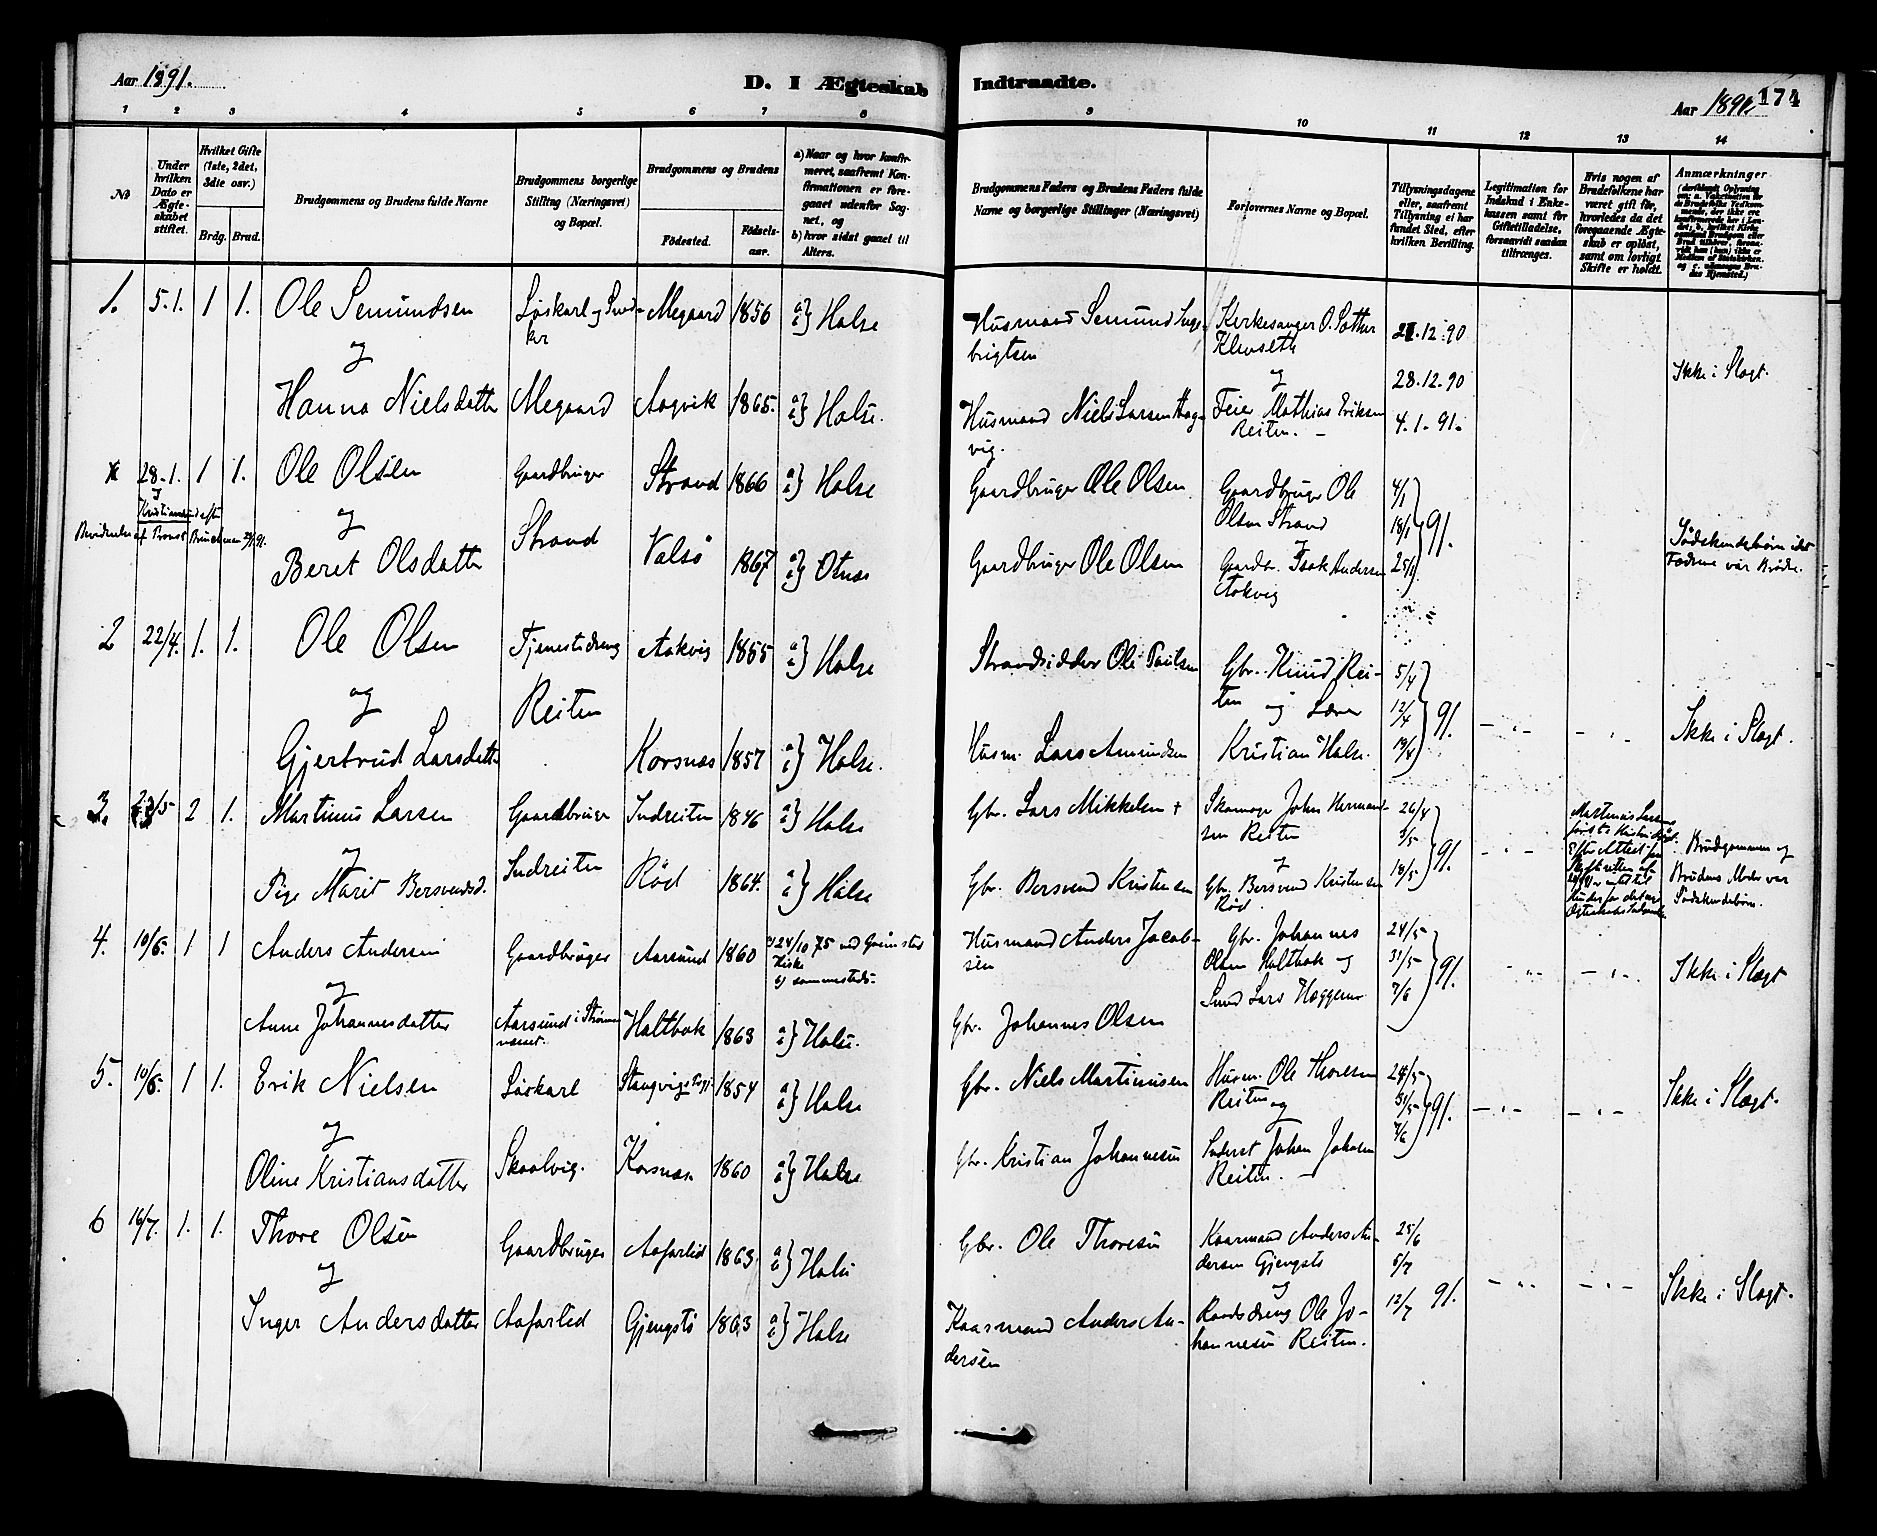 Aar 1891.
D. I Ægteskab Indtraadte.
Aar 1891. 174
1 2 3 4 5 6 7 8 9 10 11 12 13 14
№
Under hvilken Dato er Ægteskabet stiftet.
Hvilket Gifte (1ste, 2det, 3die osv.)
Brdg. Brud.
Brudgommens og Brudens fulde Navne
Brudgommens borgerlige Stilling (Næringsvei) og Bopæl.
Brudgommens og Brudens
Fødested. Fødselsaar.
a) Naar og hvor konfirmeret, saafremt Konfirmationen er foregaaet udenfor Sognet, og
b) hvor sidst gaaet til Alters.
Brudgommens Faders og Brudens Faders fulde Navne og borgerlige Stillinger (Næringsvei)
Forlovernes Navne og Bopæl.
Tillysningsdagene eller, saafremt Tillysning ei har fundet Sted, efter hvilken Bevilling.
Legitimation for Indskud i Enkekassen samt for Giftetilladelse, forsaavidt saadan tiltrænges.
Hvis nogen af Brudefolkene har været gift før, hvorledes da det foregaaende Ægteskab er opløst, samt om lovligt Skifte er holdt.
Anmærkninger
1. 5.1. 1 1. Ole Semundsen Løskarl og Smed Megaard 1856 a b} Halse Husmand Semund Ingebrigtsen Kirkesanger O. Pettter Klevseth 21.12.90
og og 28.12.90 Ikke i Slægt.
Hanna Nielsdatter Megaard Aagvik 1865. a b} Halse. Husmand Niels Larsen Aagvig. Feier Mathias Eriksen Reiten. 4.1.91.
28.1. 1 1. Ole Olsen Gaardbruger Strand 1866 a b} Halse Gaardbruger Ole Olsen Gaardbruger Ole Olsen Strand 4/1 18/1
og Strand og 91. Sødskendebørn idet Fædrene var Brødre.
Beret Olsdatter Valsø 1867 a b} Otnæs Gaardbruger Ole Olsen Gaardbr. Isak Andersen Aakvig 25/1
2 22/4. 1. 1. Ole Olsen Tjenestedreng Aakvig 1855 a b} Halse Strandsidder Ole Paulsen Gbr. Knud Reiten og Lærer 5/4 12/4
og Reiten 91. Ikke i Slægt.
Gjertrud Larsdatter Korsnæs 1857 a b} Halse. Husm. Lars Amundsen Kristian Halse. 19/4
3. 23/5 2 1. Martinus Larsen Gaardbruger Indreiten 1846 a b} Halse Gbr. Lars Mikkelsen + Skomager John Hermandsen Reiten 26/4 3/5
og Indreiten og 91. Brudgommen og Brudens Moder var Sødskendebørn.
Pige Marit Bersvendsd. Rød 1864. a b} Halse Gbr. Bersvend Kristensen Gbr. Bersvend Kristensen Rød. 18/5
4. 10/6. 1 1 Anders Andersen Gaardbruger Aarsund 1860 a) 24/10 75 ved Grimstad Kirke b) sammesteds. Husmand Anders Jacobsen Gbr. Johannes Olsen Haltbak og 24/5 31/5
og 91. Ikke i Slægt
Anne Johannesdatter Aarsund i Strømsnesset. Haltbak 1863 a b} Halse. Gbr. Johannes Olsen Smed Lars Hæggerne 7/6
5. 10/6. 1 1. Erik Nielsen Løskarl Stangvigs Prgj. 1854 a b} Halse Gbr. Niels Martinusen Husm. Ole Thoresen Reiten og 24/5 31/5
og 91. Ikke i Slægt.
Oline Kristiansdatter Skaalvig. Korsnæs. 1860 a b} Halse Gbr. Kristian Johannesen Inderst Johan Johnsen Reiten. 7/6
6 16/7. 1. 1. Thore Olsen Gaardbruger Aafarlid 1863. a b} Halse Gbr. Ole Thoresen Kaarmand Anders Andersen Gjengstø 25/6 5/7
og og 91. Ikke i Slægt.
Inger Andersdatter Aafarlid Gjengstø 1863 a b} Halse Kaarmand Anders Andersen Baadsdreng Ole Johannesen Reiten. 12/7